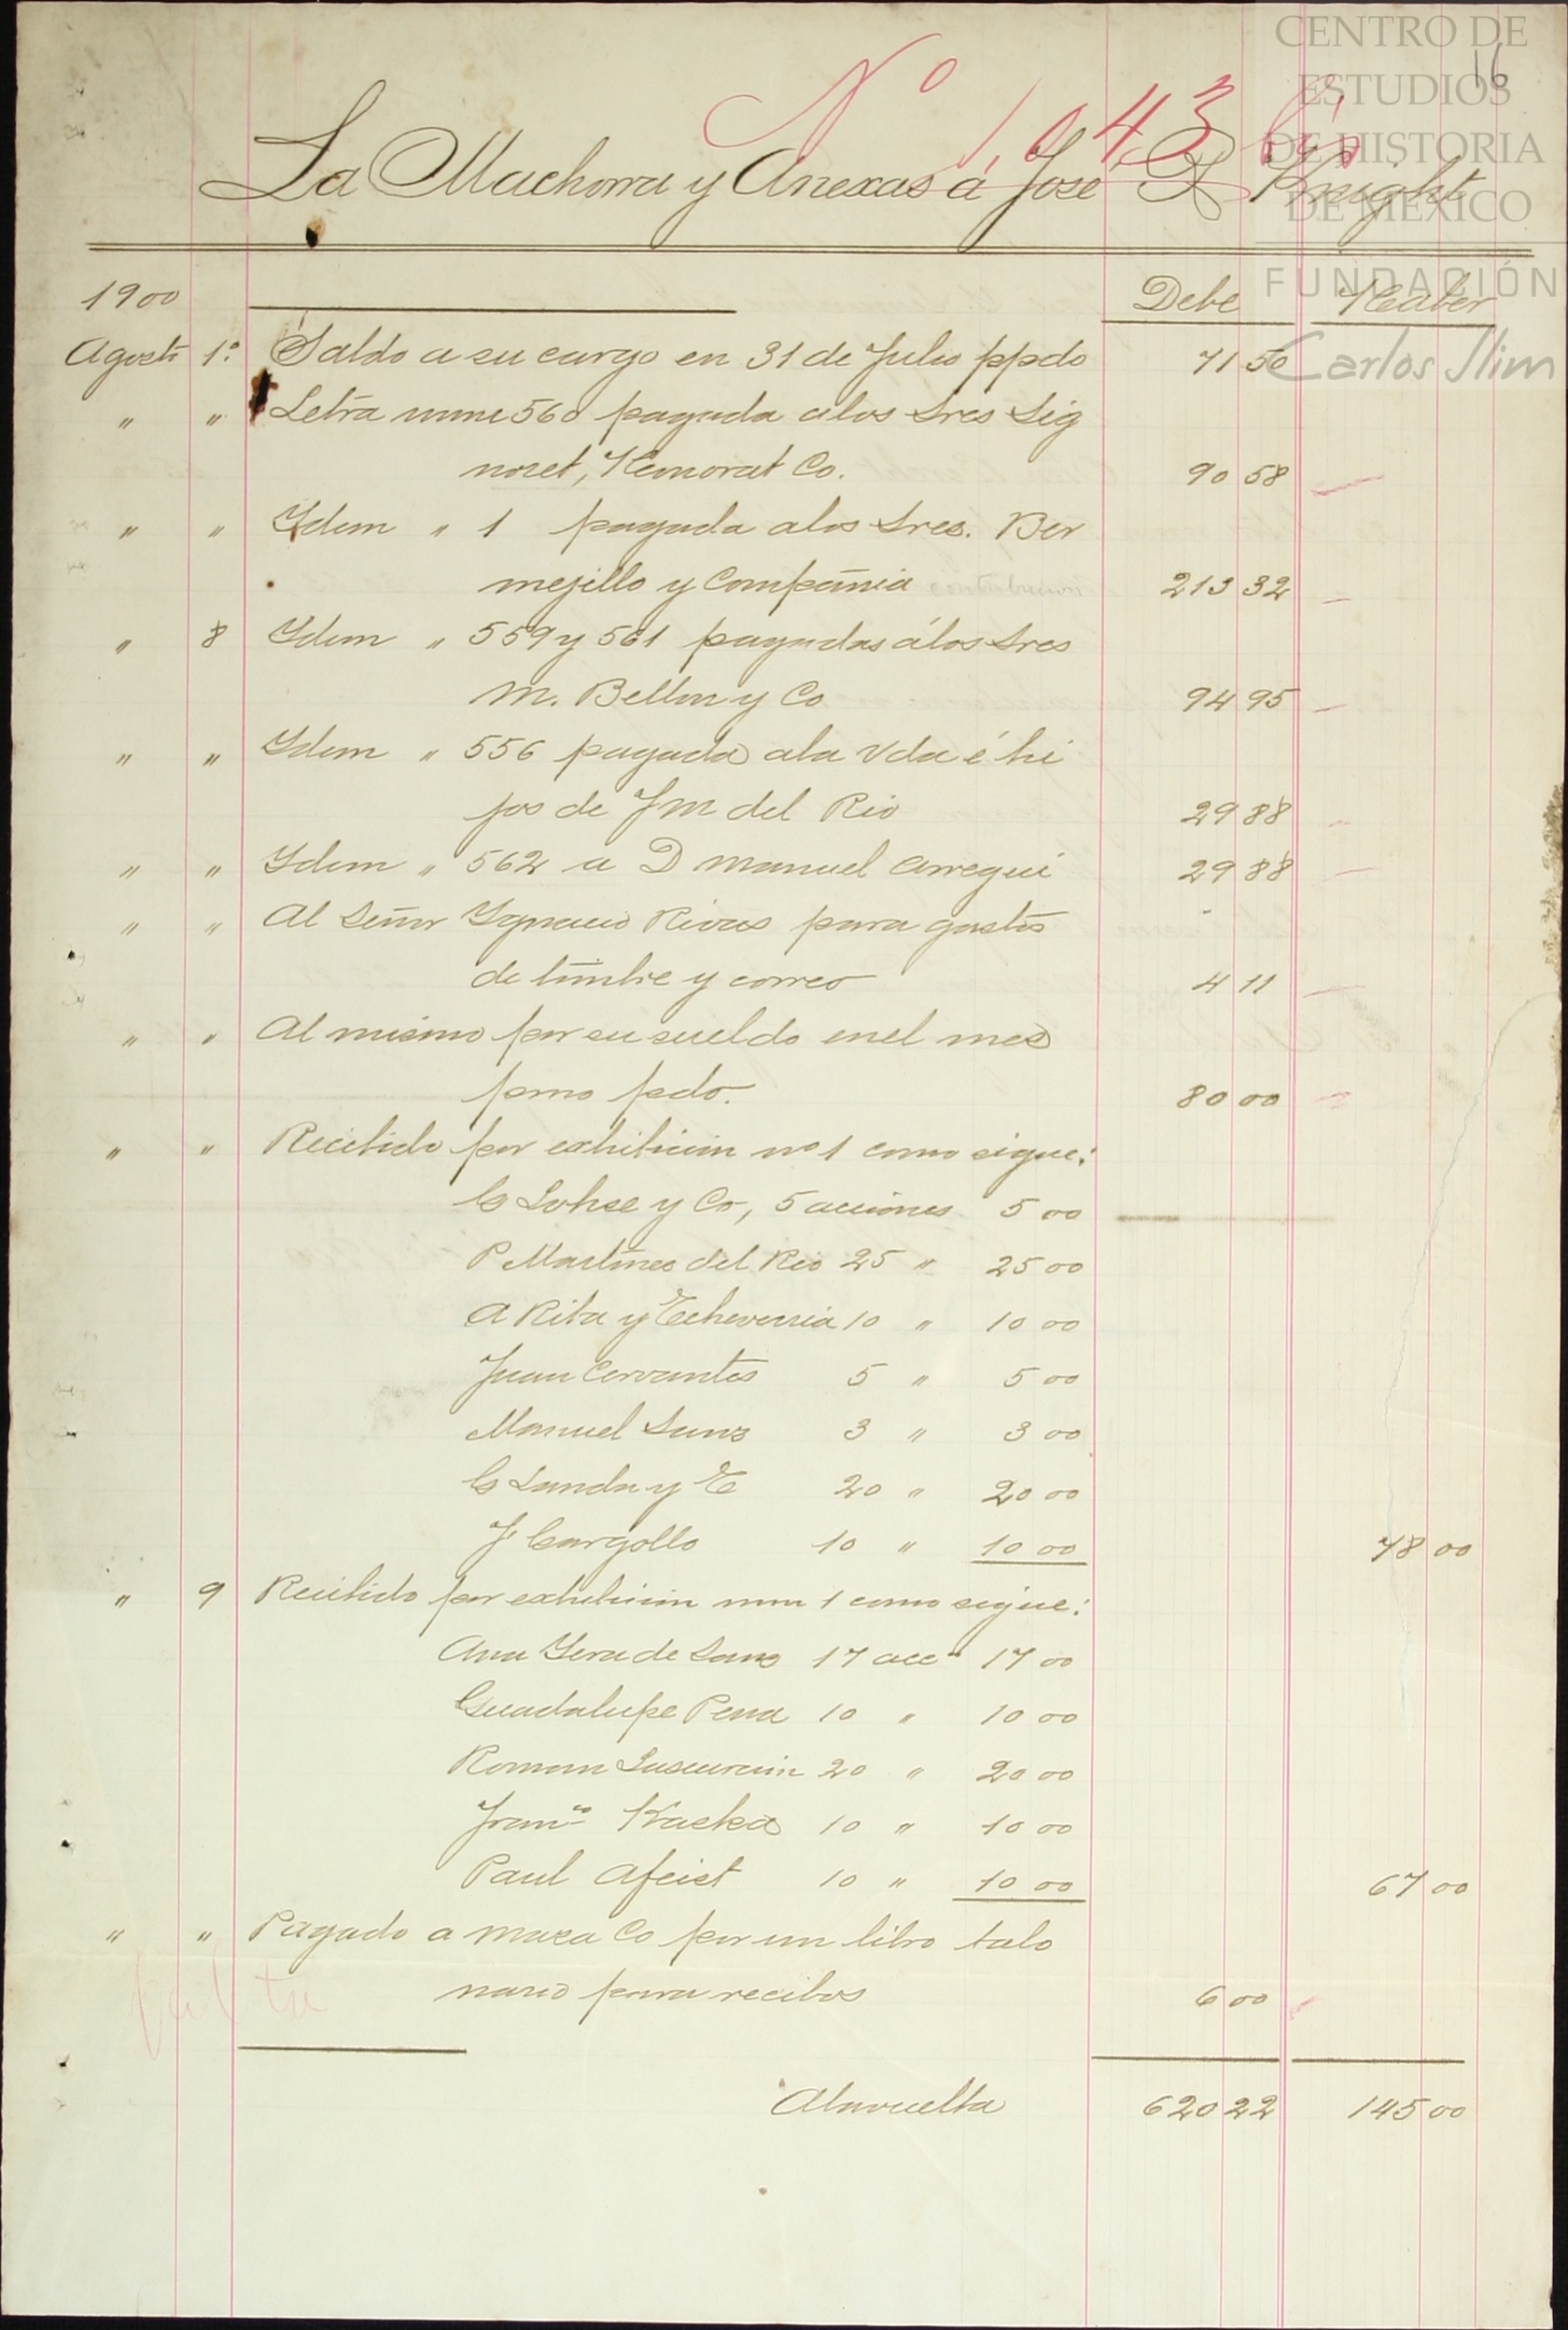 CENTRO DE
ESTUDIOS
DE HISTORIA
DE MÉXICO
FUNDACIÓN
Carlos Slim
16
Nº 1,043
La Machorra y Anexas á José Knight
1900 Debe Haber
Agosto 1º Saldo a su cargo en 31 de Julio ppdo 71 50
" " Letra num 560 pagada alos Sres Sig
noret, Honorat Co. 90 58
" " Ydem " 1 pagada alos Sres. Ber
mejillo y Compañia 213 32
" 8 Ydem " 559 y 561 pagadas álos Sres
M. Bellon y Co 94 95
" " Ydem " 556 pagada ala Vda é hi
jos de JM del Rio 29 88
" " Ydem " 562 a D Manuel Arregui 29 88
" " Al Señor Ygnacio Rivas para gastos
de timbre y correo 4 11
" " Al mismo por su sueldo enel mes
pmo pdo. 80 00
" " Recibido por exhibicion nº 1 como sigue:
C Lohse y Co, 5 acciones 5 00
P Martines del Rio 25 " 25 00
A Riba y Echeverria 10 " 10 00
Juan Cervantes 5 " 5 00
Manuel Sanz 3 " 3 00
C Landa y E 20 " 20 00
J Cargollo 10 " 10 00 78 00
" 9 Recibido por exhibicion num 1 como sigue:
Ana de Sanz 17 acc 17 00
Guadalupe Pena 10 " 10 00
Roman Lascurain 20 " 20 00
Franco Kaska 10 " 10 00
Paul 10 " 10 00 67 00
" " Pagado a Maza Co por un libro talo
nario para recibos 6 00
falta
Alavuelta 620 22 145 00